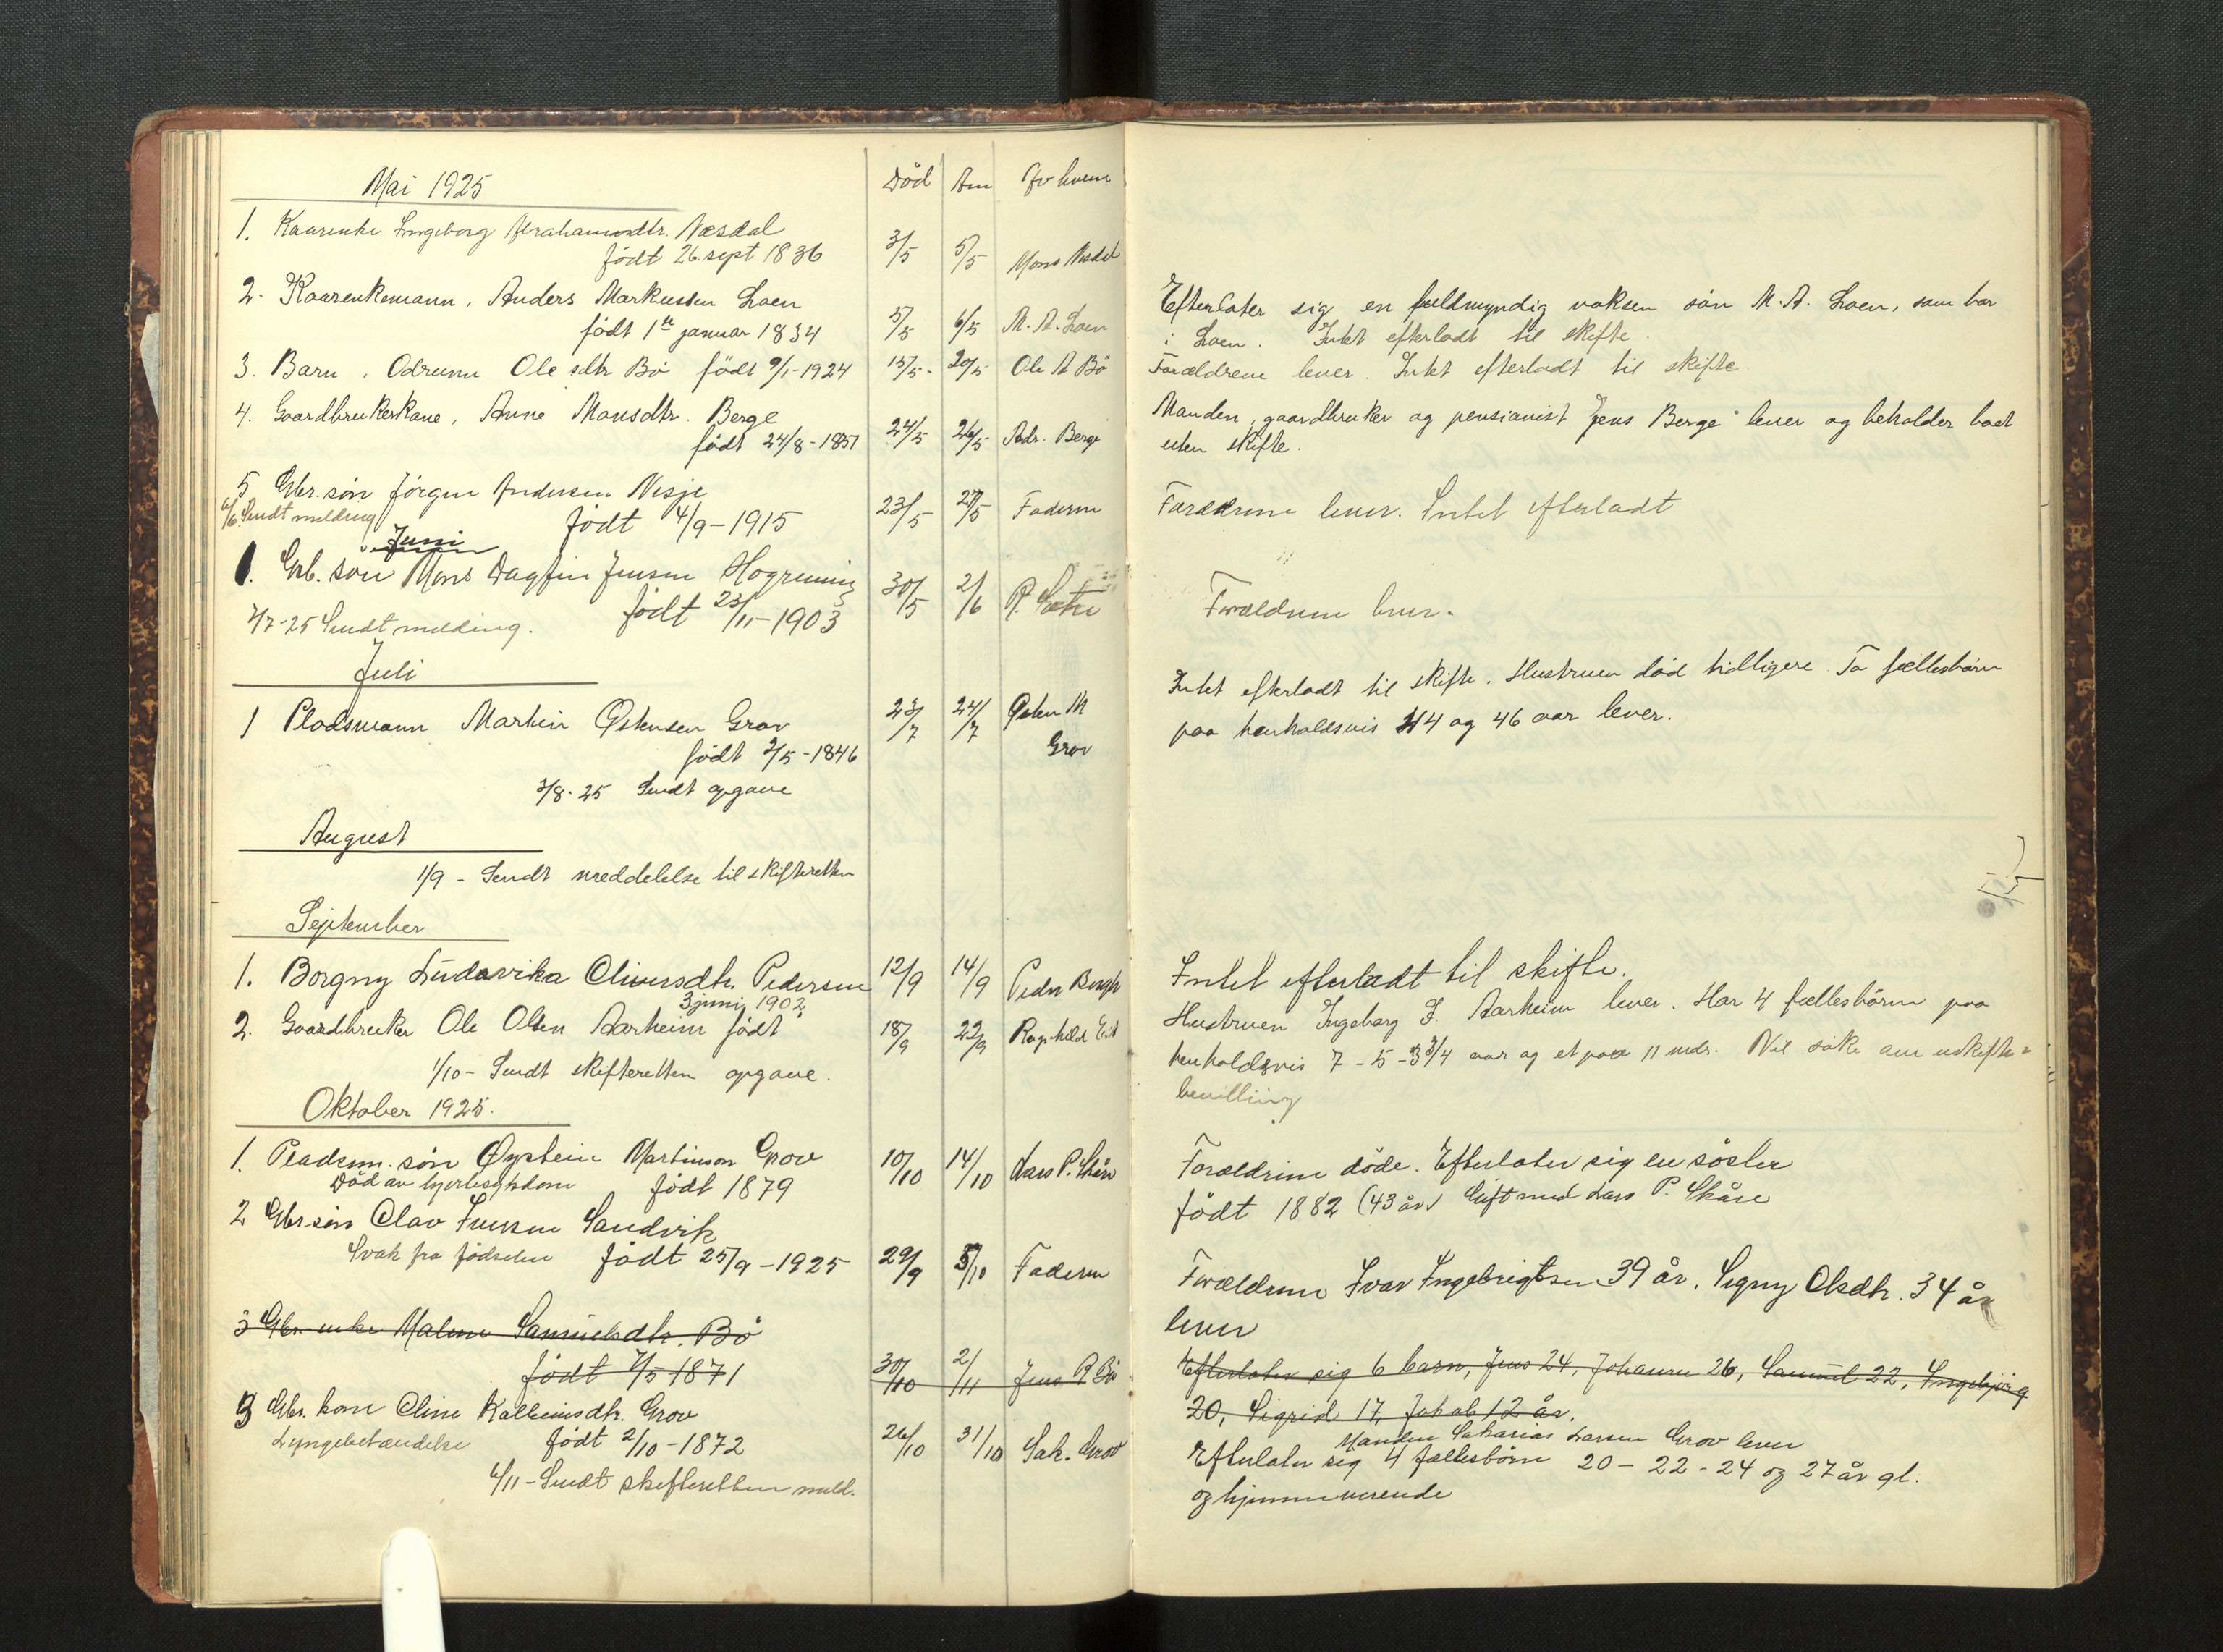 Mai 1925
Död Am Av hvem
1. Kaarenke Ingeborg Abrahamsdtr. Næsdal
født 26. sept 1836 3/5 5/5 Mons Nesdal
2. Kaarenkemann, Anders Markussen Loen
født 1ste januar 1834 5/5 6/5 M. A. Loen
3. Barn, Odrunn Ole sdtr Bö födt 9/1-1924 15/5 - 20/5 Ole A Bö
4. Gaardbrukerkone, Anne Monsdtr. Berge
født 24/8 - 1851 24/5 26/5 Andr. Berge
5 Gbr. søn Jörgen Andersen Nesje
6/6. Sendt melding født 4/9 - 1915 23/5 27/5 Faderen
Juni
1. Grb. søn Mons Dagfin Jensen Hogrenning
født 23/11 - 1903 30/5 2/6 R. Sætre
4/7-25 Sendt melding.
Juli
1 Pladsmann Martin Østensen Grov 23/7 24/7 Østen M
født 2/5 - 1846 Grov
3/8 - 25 Sendt opgave
August
1/9 - Sendt meddelelse til skifteretten
September
1. Borgny Ludovika Oliversdtr. Pedersen 12/9 14/9 Peder
3 juni 1902
2. Gaardbruker Ole Olsen Aarheim født 18/9 22/9 Ragnhild
1/10 - Sendt skifteretten opgave.
Oktober 1925.
1. Pladsm. søn Øystein Martinson Grov 10/10 14/10 Lars P. Skåre
Död av hjertesykdom født 1879
2 Gbr. søn Olav Ivarsen Sandvik
Svak fra fødselen født 25/9 - 1925 29/9 5/10 Faderen
3 Gbr. enke Malene Samuelsdtr. Bö
født 7/5 1871 30/10 2/11 Jens R Bö
3 Gbr. kone Oline Kolbeinsdtr. Grov
Lungebetændelse født 2/10 - 1872 26/10 31/10 Sak. Grov
6/11 - Sendt skifteretten meld.
Efterlater sig en fuldmyndig voksen sön M. A. Loen, som bor
i Loen. Intet efterladt til skifte.
Forældrene lever. Intet efterladt til skifte
Manden, gaardbruker og pensionist Jens Berge lever og beholder boet
uten skifte.
Forældrene lever. Intet efterladt
Forældrene lever.
Intet efterladt til skifte. Hustruen död tidligere. To fællesbörn
paa henholdsvis 44 og 46 aar lever.
Intet efterladt til skifte.
Hustruen Ingeborg J. Aarheim lever. Har 4 fællesbörn paa
henholdsvis 7 - 5 - 3 3/4 aar og et paa 11 mdr. Vil söke om uskifte=
bevilling
Forældrene döde. Efterlater sig en söster
født 1882 (43 år) Gift med Lars P. Skåre
Forældrene Ivar Ingebrigtsen 39 år, Signy Olsdtr. 34 år
lever
Efterlater sig 6 barn, Jens 24, Johanne 26, Samuel 22, Ingebjörg
20, Sigrid 17, Jakob 12 år.
Manden Sakarias Larsen Grov lever
Efterlater sig 4 fællesbörn 20 - 22 - 24 og 27 år gl.
og hjemmeverende